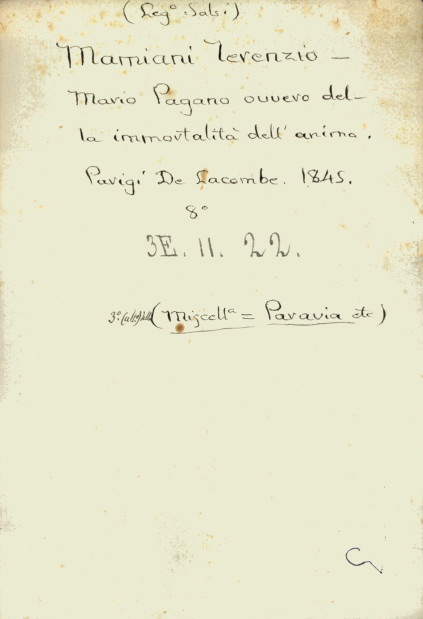 (Leg.º Salsi)
Mamiani Terenzio —
Mario Pagano ovvero del-
la immortalità dell'anima.
Parigi De Lacombe. 1845.
8º
3E. 11. 22.
3º (Miscellª = Paravia etc)